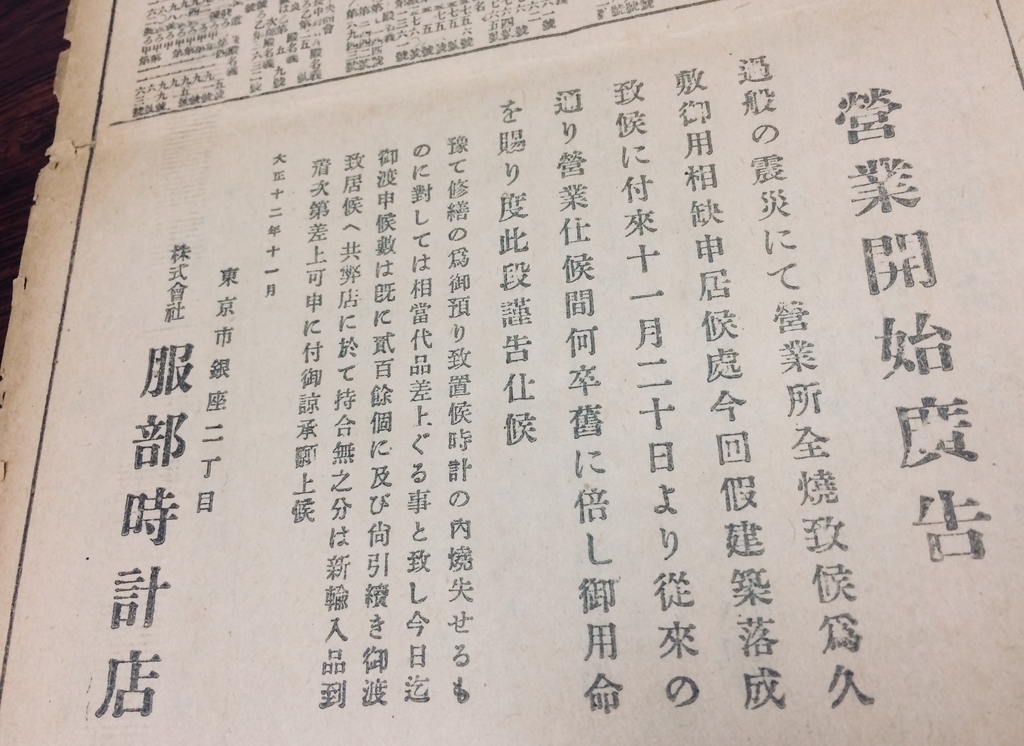 營業開始廣告
過般の震災にて營業所全燒致候爲久
敷御用相缺申居候處今回假建築落成
致候に付來十一月二十日より從來の
通り營業仕候間何卒舊に倍し御用命
を賜り度此段謹告仕候
豫て修繕の爲御預り致置候時計の內燒失せるも
のに對しては相當代品差上ぐる事と致し今日迄
御渡申候數は旣に貳百餘個に及び尙引續き御渡
致居候へ共弊店に於て持合無之分は新輸入品到
着次第差上可申に付御諒承願上候
大正十二年十一月
東京市銀座二丁目
株式會社 服部時計店